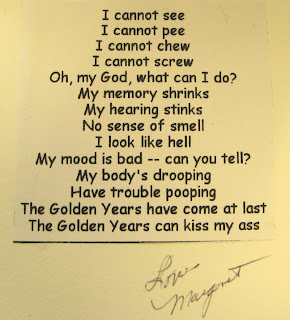 I cannot see
I cannot pee
I cannot chew
I cannot screw
Oh, my God, what can I do?
My memory shrinks
My hearing stinks
No sense of smell
I look like hell
My mood is bad -- can you tell?
My body's drooping
Have trouble pooping
The Golden Years have come at last
The Golden Years can kiss my ass
Love
Margaret